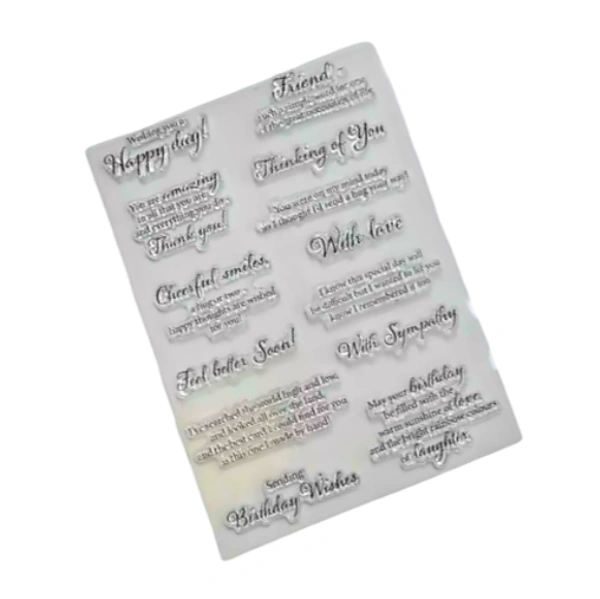 Wishing you a
Happy day!
You are amazing
in all that you are
and everything you do.
Thank you!
Cheerful smiles,
a hug or two
happy thoughts are wished
for you!
Feel better Soon!
I've searched the world high and low,
and looked all over the land,
and the best card I could find for you
is this one I made by hand!
Sending
Birthday Wishes
Friend
such a small word for one
of the great necessities of life
Thinking of You
You were on my mind today
so I thought I'd send a hug your way!
With love
I know this special day will
be difficult but I wanted to let you
know I remembered it too
With Sympathy
May your birthday
be filled with the
warm sunshine of love,
and the bright rainbow colours
of laughter.